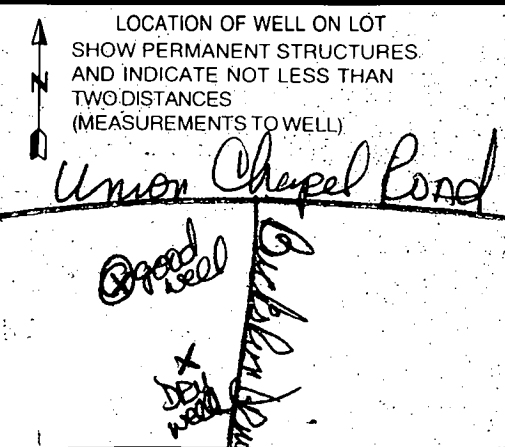 LOCATION OF WELL ON LOT
SHOW PERMANENT STRUCTURES
AND INDICATE NOT LESS THAN
TWO DISTANCES
(MEASUREMENTS TO WELL)
N
Union Chapel Road
good
well
Buckskin
X
DRY
well